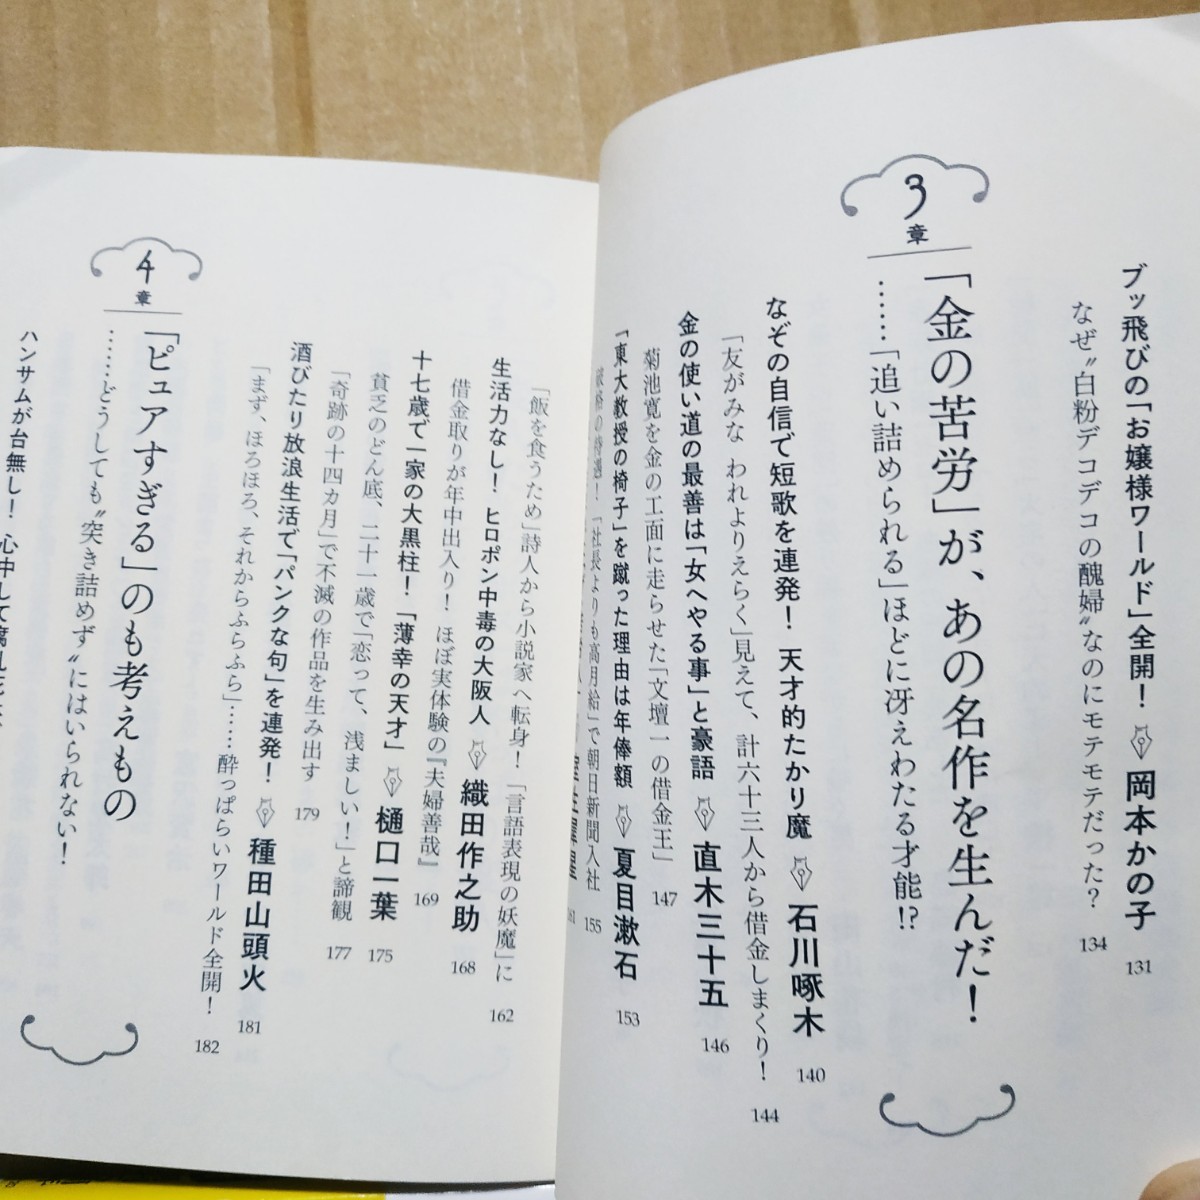 ブッ飛びの「お嬢様ワールド」全開！ 岡本かの子 131
なぜ〝白粉デコデコの醜婦〟なのにモテモテだった？ 134
3章 「金の苦労」が、あの名作を生んだ！
……「追い詰められる」ほどに冴えわたる才能!?
なぞの自信で短歌を連発！ 天才的たかり魔 石川啄木 140
「友がみな われよりえらく」見えて、計六十三人から借金しまくり！ 144
金の使い道の最善は「女へやる事」と豪語 直木三十五 146
菊池寛を金の工面に走らせた「文壇一の借金王」 147
「東大教授の椅子」を蹴った理由は年俸額 夏目漱石 153
破格の待遇！「社長よりも高月給」で朝日新聞入社 155
161
「飯を食うため」詩人から小説家へ転身！「言語表現の妖魔」に 162
生活力なし！ ヒロポン中毒の大阪人 織田作之助 168
借金取りが年中出入り！ ほぼ実体験の『夫婦善哉』 169
十七歳で一家の大黒柱！「薄幸の天才」 樋口一葉 175
貧乏のどん底、二十一歳で「恋って、浅ましい！」と諦観 177
「奇跡の十四カ月」で不滅の作品を生み出す 179
酒びたり放浪生活で「パンクな句」を連発！ 種田山頭火 181
「まず、ほろほろ、それからふらふら」……酔っぱらいワールド全開！ 182
4章 「ピュアすぎる」のも考えもの
……どうしても〝突き詰めず〟にはいられない！
ハンサムが台無し！ 心中して腐乱